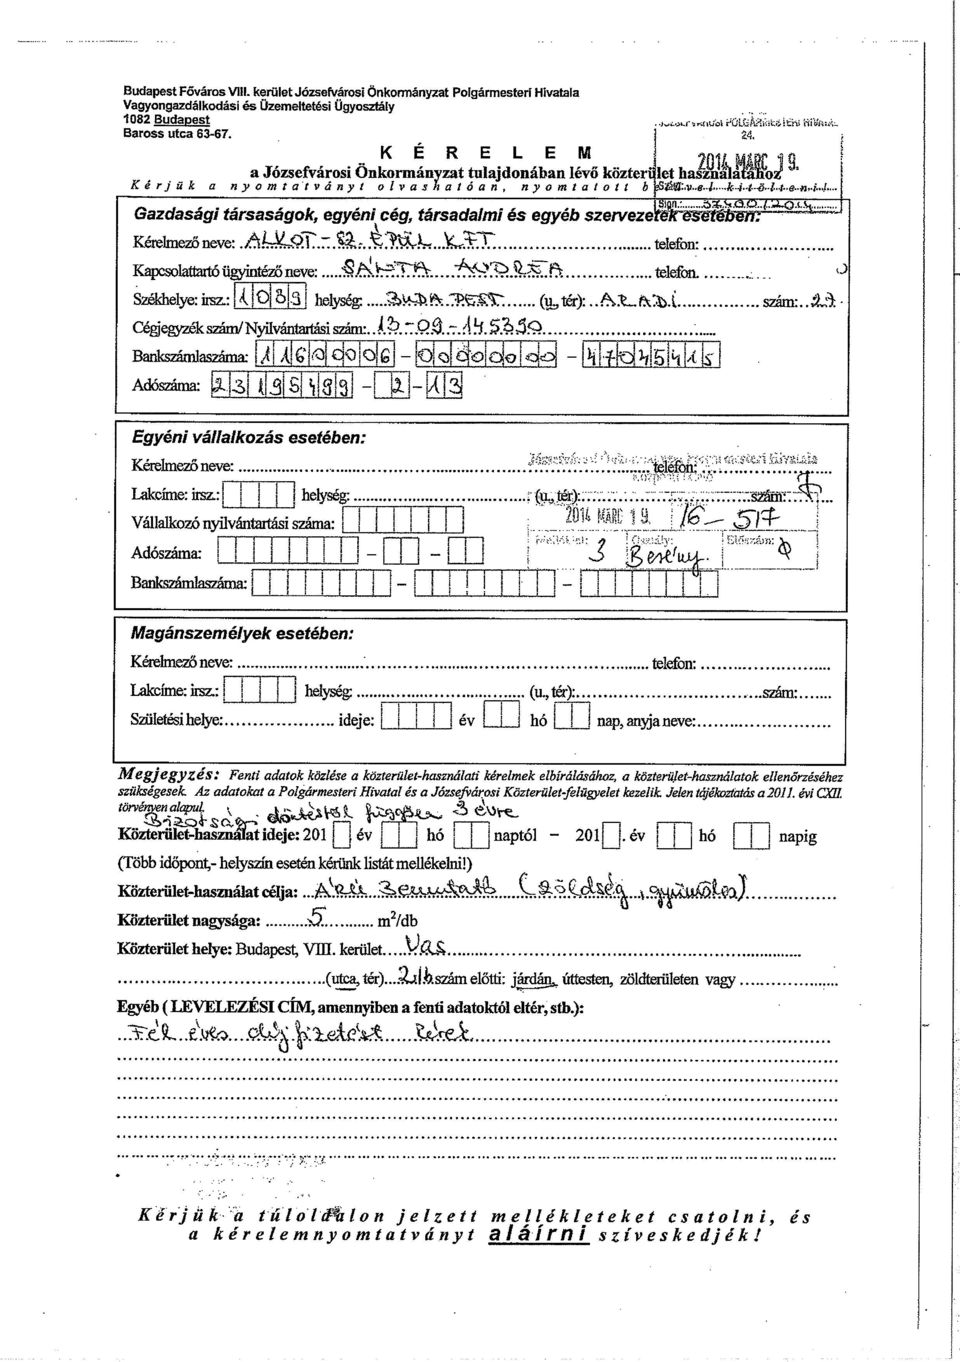 Budapest Főváros VIII. kerület Józsefvárosi Önkormányzat Polgármesteri Hivatala
Vagyongazdálkodási és Üzemeltetési Ügyosztály
1082 Budapest
Baross utca 63-67.
24.
K É R E L E M
2014 MÁRC 19.
a Józsefvárosi Önkormányzat tulajdonában lévő közterület használatához
Kérjük a nyomtatványt olvashatóan, nyomtatott
Gazdasági társaságok, egyéni cég, társadalmi és egyéb szervezetek esetében:
Kérelmező neve: ALKOT-SZ. ÉPÜL KFT telefon:
Kapcsolattartó ügyintéző neve: SÁNTA ANDREA telefon
Székhelye: irsz.: 1089 helység: BUDAPEST (u., tér): szám:
Cégjegyzék szám/Nyilvántartási szám: 13-09-145390
Bankszámlaszáma: 11600006-00000000-
Adószáma: -2-13
Egyéni vállalkozás esetében:
Kérelmező neve: telefon:
Lakcíme: irsz.: helység: (u., tér): szám:
Vállalkozó nyilvántartási száma: 2014 MÁRC 19. 16-517
Adószáma: - - 3
Bankszámlaszáma: - -
Magánszemélyek esetében:
Kérelmező neve: telefon:
Lakcíme: irsz.: helység: (u., tér): szám:
Születési helye: ideje: év hó nap, anyja neve:
Megjegyzés: Fenti adatok közlése a közterület-használati kérelmek elbírálásához, a közterület-használatok ellenőrzéséhez
szükségesek. Az adatokat a Polgármesteri Hivatal és a Józsefvárosi Közterület-felügyelet kezelik. Jelen tájékoztatás a 2011. évi CXII.
törvényen alapul.
Bizottsági döntéstől függően 3 évre
Közterület-használat ideje: 201 év hó naptól - 201 . év hó napig
(Több időpont,- helyszín esetén kérünk listát mellékelni!)
Közterület-használat célja: Árú Bemutatás (zöldség, gyümölcs)
Közterület nagysága: 5 m²/db
Közterület helye: Budapest, VIII. kerület Vas
(utca, tér) szám előtti: járdán, úttesten, zöldterületen vagy
Egyéb ( LEVELEZÉSI CÍM, amennyiben a fenti adatoktól eltér, stb.):
Fél éves díj fizetést kérek
Kérjük a túloldalon jelzett mellékleteket csatolni, és
a kérelemnyomtatványt aláírni szíveskedjék!